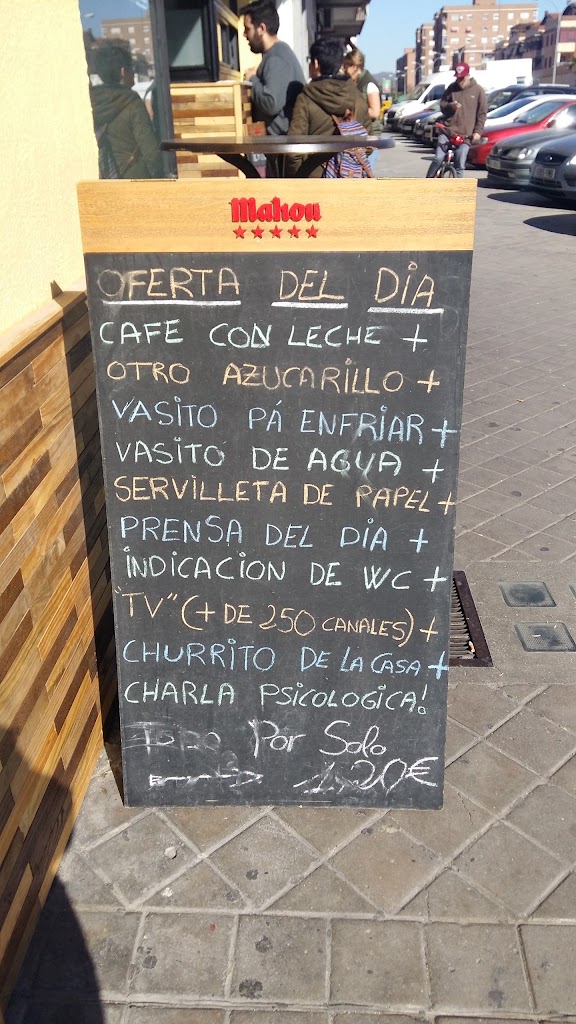 Mahou
OFERTA DEL DiA
CAFE CON LECHE +
OTRO AZUCARILLO +
VASiTO PÁ ENFRiAR +
VASiTO DE AGUA +
SERVILLETA DE PAPEL +
PRENSA DEL DIA +
iNDiCACION DE WC +
"TV" (+ DE 250 CANALES) +
CHURRiTO DE LA CASA +
CHARLA PSiCOLOGiCA!
TODO Por Solo
1,20€